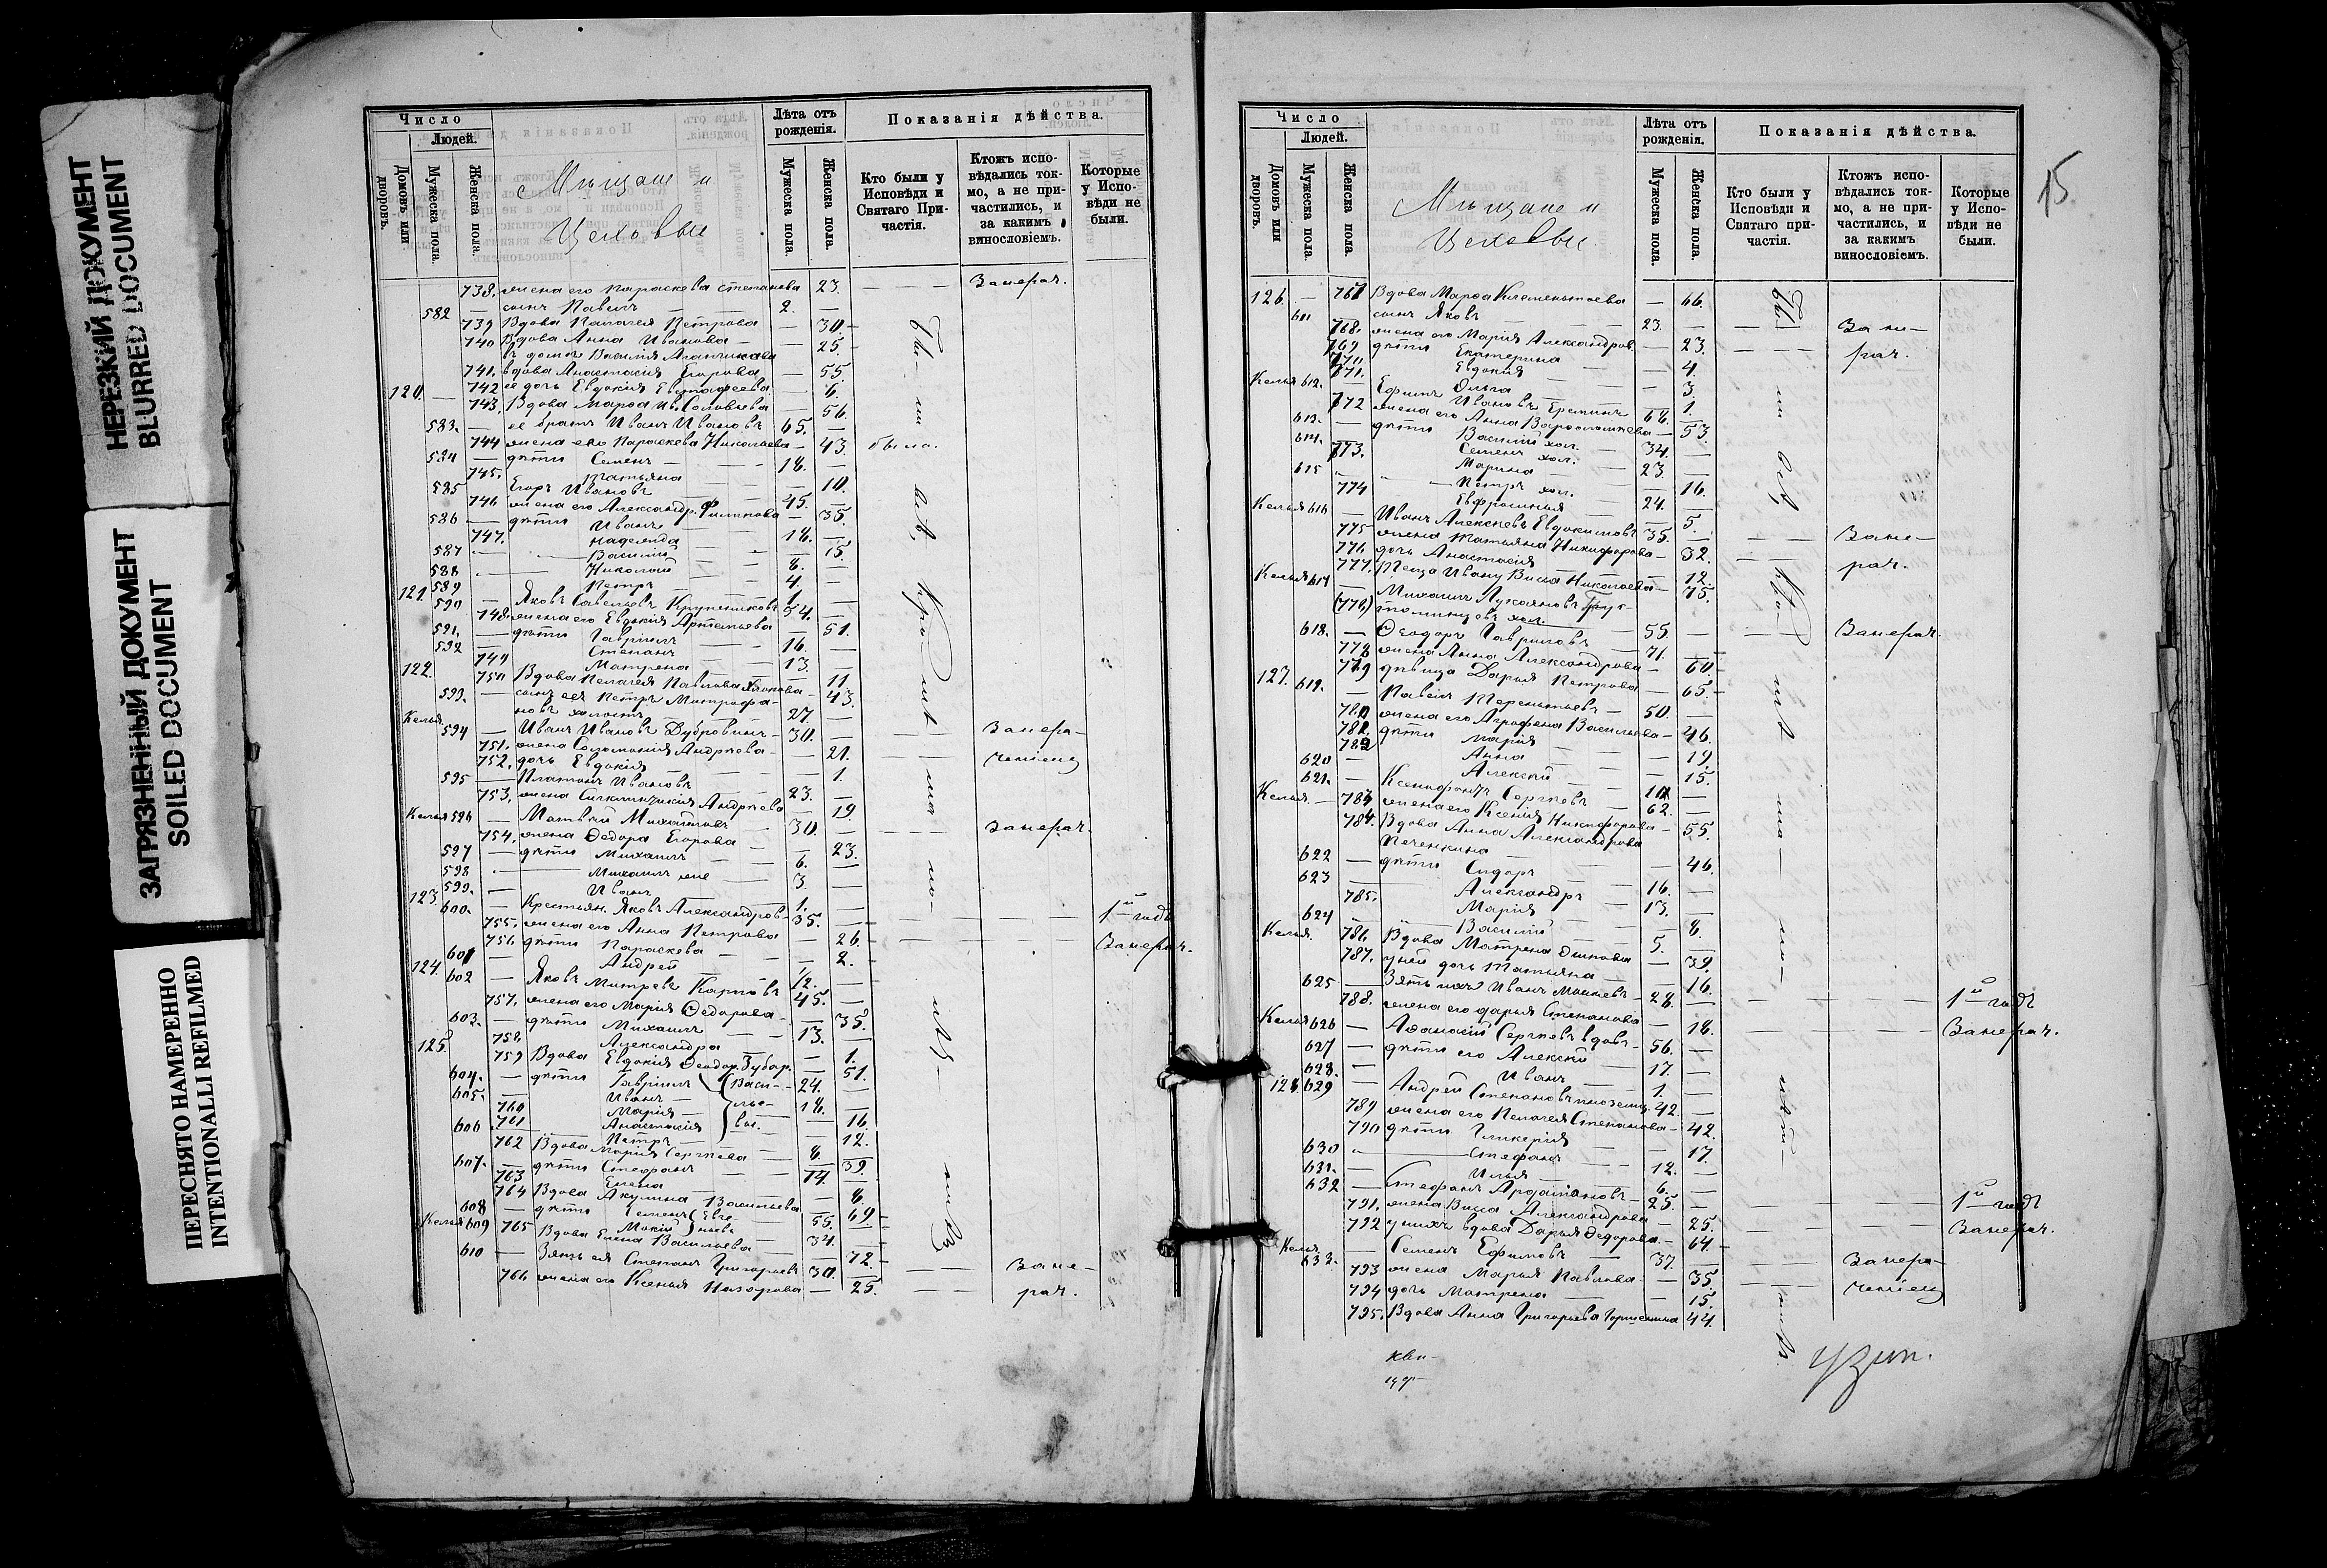 НЕРЕЗКИЙ ДОКУМЕНТ
BLURRED DOCUMENT
ЗАГРЯЗНЕННЫЙ ДОКУМЕНТ
SOILED DOCUMENT
ПЕРЕСНЯТО НАМЕРЕННО
INTENTIONALLI REFILMED
Число
Людей.
Домовъ или дворовъ.
Мужеска пола.
Женска пола.
Мѣщане и
Цеховые
Лѣта отъ рожденія.
Мужеска пола.
Женска пола.
Показанія дѣйства.
Кто были у Исповѣди и Святаго Причастія.
Ктожъ исповѣдались токмо, а не причастились, и за какимъ винословіемъ.
Которые у Исповѣди не были.
738. жена его Параскева Степанова 23. — — Занерач.
582 — сынъ Павелъ — — 2. —
739 Вдова Палагея Петрова — 30 -
740 Вдова Анна Иванова — — 25 -
въ домѣ Василія
741. вдова Анастасія Егорова — 55.
742 её дочь Евдокія — 6.
120. — 743. Вдова Марѳа Ив. Соловьева — 56.
583. — её братъ Иванъ Ивановъ 65. —
744 жена его Параскева Николаева — 43. была.
584 — дѣти Семенъ — 18. —
745. Татьяна — 10.
585 Егоръ Ивановъ 45. —
746 жена его Александр. Филипова — 35.
586 — дѣти Иванъ 18. —
747. Надежда — 15.
587 — Василій 8. —
588 — Николай 4. —
589 Петръ 1. —
121. 590 — Яковъ Савельевъ 54. —
748. жена его Евдокія Артемьева — 51.
591. — дѣти Гавріилъ 16. —
592 — Степанъ 13. —
749 Матрена — 11.
122. 750 Вдова Пелагея Павлова — 43.
593. — сынъ ея Петръ Митрофановъ холостъ 27. —
Келья. 594 — Иванъ Ивановъ Дубровинъ — 30. — Занера-
751. жена Соломонія Андреева — 21. ченіемъ
752. дочь Евдокія — 1.
595 — Платонъ Ивановъ 23. —
753. жена Андреева — 19.
Келья 596 — Матвѣй Михайловъ 30. — Занерач.
754. жена Ѳедора Егорова — 23.
597 — дѣти Михаилъ — 6. —
598 — Михаилъ же — 3. —
599. — Иванъ 1. —
123. 600. — Крестьян. Яковъ Александров — 35. — 1й годъ
755. жена его Анна Петрова — 26. Занерач.
756 дѣти Параскева — 2.
601 — Андрей 1/2. —
124. 602 — Яковъ Митревъ Карповъ 45. —
757. жена его Марія Ѳедорова — 35.
603. — дѣти Михаилъ 13. —
758. Александра — 1.
125. 759 Вдова Евдокія Ѳеодор. — 51.
604. — дѣти Гавріилъ Васи- 24. —
605. Иванъ — лье- 18. —
760 Марія — вы. — 16.
761 Анастасія — 12.
606 Петръ — 8. —
762 Вдова Марія Сергѣева — 39.
607. — дѣти Стефанъ 14. —
763 Елена — 8.
764 Вдова Акулина Васильева — 69.
608 — дѣти Семенъ 55. —
609 Мокій 34. —
Келья 765 Вдова Елена Васильева — 72.
610 — Зять ея Степанъ Григорьевъ 30. — Зане-
766 жена его Ксенія Назарова — 25. рач.
Число
Людей.
Домовъ или дворовъ.
Мужеска пола.
Женска пола.
Мѣщане и
Цеховые.
Лѣта отъ рожденія.
Мужеска пола.
Женска пола.
Показанія дѣйства.
Кто были у Исповѣди и Святаго причастія.
Ктожъ исповѣдались токмо, а не причастились, и за какимъ винословіемъ.
Которые у Исповѣди не были.
15.
126. — 767 Вдова Марѳа Клементьева — 66.
611 сынъ Яковъ 23. — Зане-
768. жена его Марія Александров. — 23. рач.
769 дѣти Екатерина — 4.
770 Евдокія — 3.
771. Ольга — 1.
Келья 612. — Ефимъ Ивановъ Ереминъ 68. —
772 жена его Анна Варѳоломеева — 53.
613. — дѣти Василій хол. 34. —
614. — Семенъ хол. 23. —
773. Марина — 16.
615 Петръ хол. 24. —
774 Евфросинія — 5.
Келья 616 — Иванъ Алексѣевъ Евдокимовъ 35. — Зане-
775 жена Татьяна Никифорова — 32. рач.
776 дочь Анастасія — 12.
777. Теща Ивану Николаева — 75.
Келья 617 — Михаилъ Лукьяновъ
(778) хол. 55. — Занерач.
618. — Ѳеодоръ Гавриловъ 71. —
778 жена Анна Александрова — 60.
779 дѣвица Дарья Петрова — 65.
127. 619. — Павелъ Терентьевъ — 50. —
780 жена его Аграфена Васильева — 46.
781. дѣти Марія — 19.
782 Анна — 15.
620 — Алексѣй 10. —
621. — Ксенофонтъ Сергѣевъ 62. —
783 жена его Ксенія Никифорова — 55.
Келья. — 784. Вдова Анна Александрова
Печенкина — 46.
622 — дѣти Сидоръ 16. —
623 — Александръ — 13. —
785. Марія — 8.
624 — Василій 5. —
Келья. 786. Вдова Матрена — 39.
787. у ней дочь Татьяна — 16.
625 — Зять ихъ Иванъ Мокѣевъ — 28. — 1й годъ
788. жена его Дарья Степанова — 18. Занерач.
Келья 626 — Аѳанасій Сергѣевъ вдовъ — 56. —
627 — дѣти его Алексѣй 17. —
628. — Иванъ 1. —
128 629 — Андрей Степановъ 42. —
789 жена его Пелагея Степанова — 42.
790 дѣти Гликерія — 17.
630 — Стефанъ 12. —
631. — Илья 6. —
632 — Стефанъ 25. — 1й годъ
791. жена Васса Александрова — 25. Занерач.
792 у нихъ вдова Дарья Ѳедорова — 64.
Келья 633. — Семенъ Ефимовъ 37. — Занера-
793 жена Марья Павлова — 35. ченіемъ
794 дочь Матрена — 15.
795. Вдова Анна Григорьева 44.